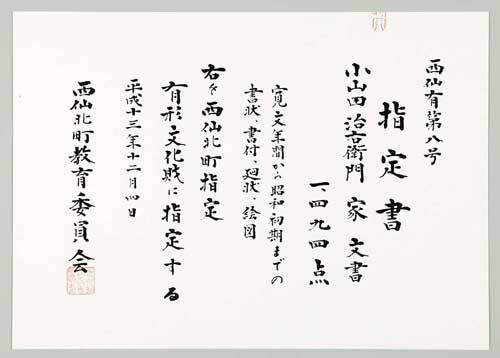 西仙有第八号
指定書
小山田治右衛門家文書
一、四九四点
寛文年間から昭和初期までの
書状、書付、廻状、絵図
右を西仙北町指定
有形文化財に指定する
平成十三年十二月四日
西仙北町教育委員会